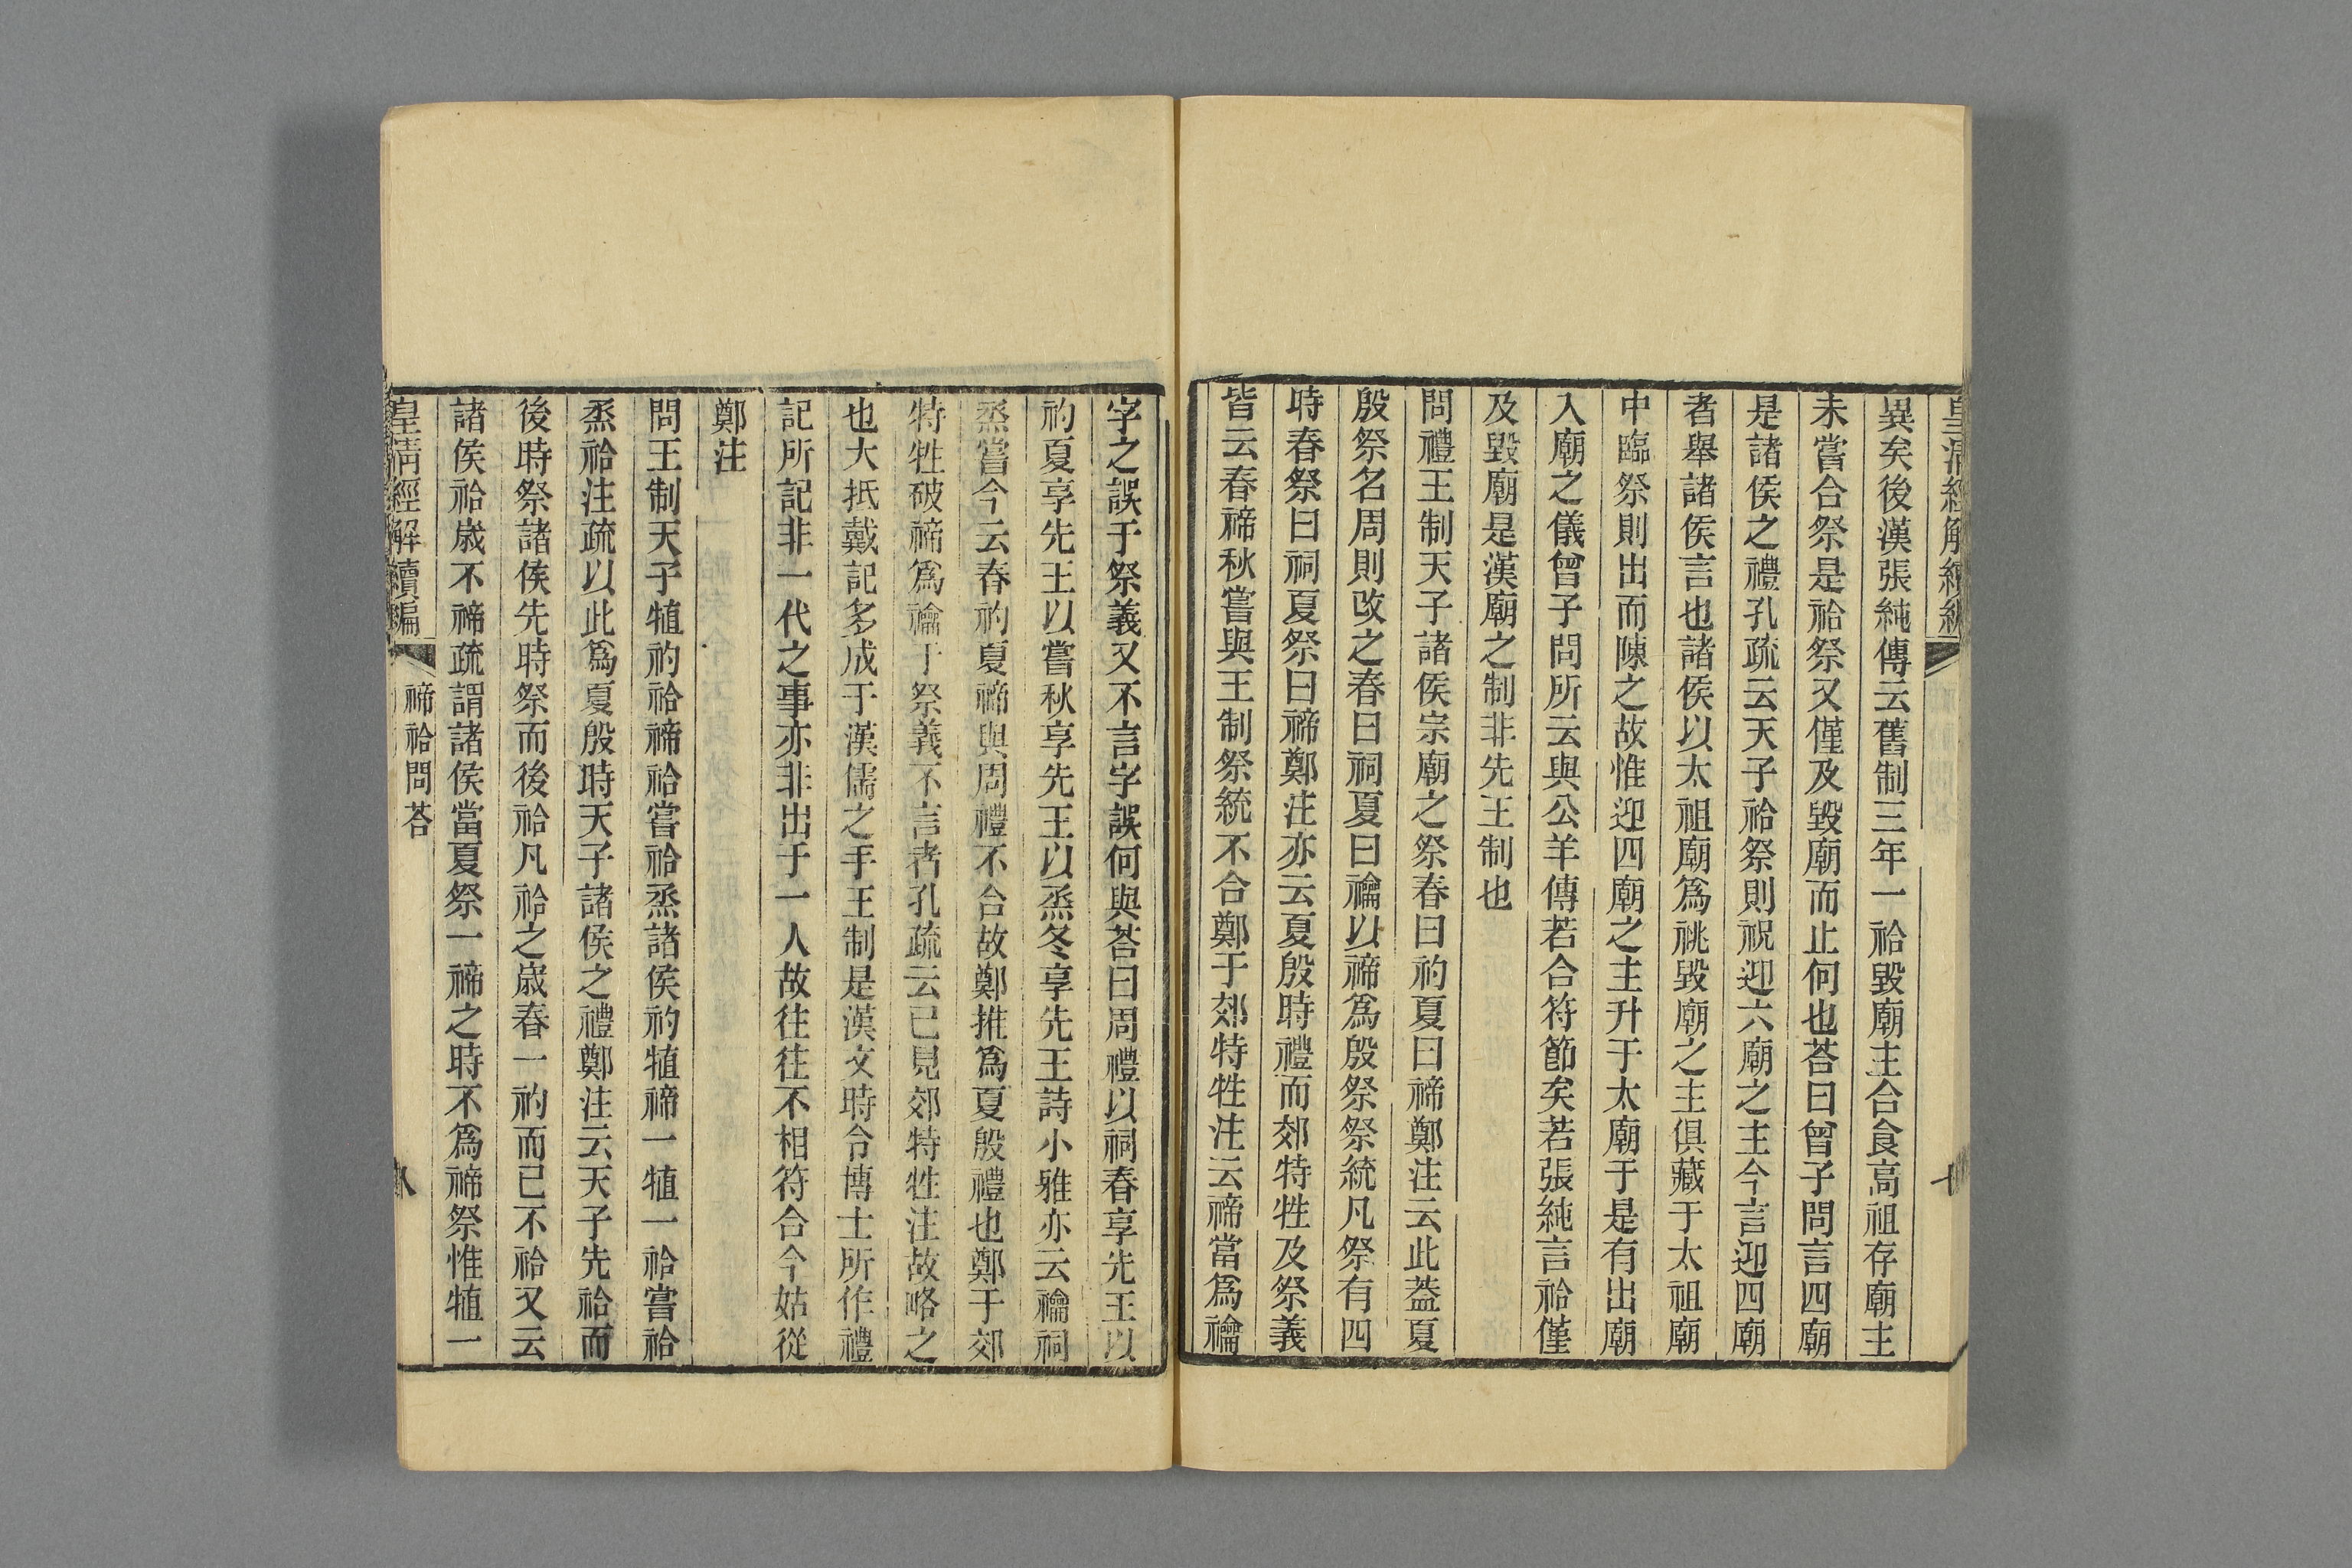 皇清經解續編
異矣後漢張純傳云舊制三年一祫毀廟主合食高祖存廟主
未嘗合祭是祫祭又僅及毀廟而止何也荅曰曾子問言四廟
是諸侯之禮孔疏云天子祫祭則祝迎六廟之主今言迎四廟
者舉諸侯言也諸侯以太祖廟爲祧毀廟之主俱藏于太祖廟
中臨祭則出而陳之故惟迎四廟之主升于太廟于是有出廟
入廟之儀曾子問所云與公羊傳若合符節矣若張純言祫僅
及毀廟是漢廟之制非先王制也
問禮王制天子諸侯宗廟之祭春曰礿夏曰禘鄭注云此蓋夏
殷祭名周則改之春曰祠夏曰禴以禘爲殷祭祭統凡祭有四
時春祭曰祠夏祭曰禘鄭注亦云夏殷時禮而郊特牲及祭義
皆云春禘秋嘗與王制祭統不合鄭于郊特牲注云禘當爲禴
字之誤于祭義又不言字誤何與荅曰周禮以祠春享先王以
礿夏享先王以嘗秋享先王以烝冬享先王詩小雅亦云禴祠
烝嘗今云春礿夏禘與周禮不合故鄭推爲夏殷禮也鄭于郊
特牲破禘爲禴于祭義不言者孔疏云已見郊特牲注故略之
也大抵戴記多成于漢儒之手王制是漢文時令博士所作禮
記所記非一代之事亦非出于一人故往往不相符合今姑從
鄭注
問王制天子犆礿祫禘祫嘗祫烝諸侯礿犆禘一犆一祫嘗祫
烝祫注疏以此爲夏殷時天子諸侯之禮鄭注云天子先祫而
後時祭諸侯先時祭而後祫凡祫之歲春一礿而已不祫又云
諸侯祫歲不禘疏謂諸侯當夏祭一禘之時不爲禘祭惟犆一
皇清經解續編
禘祫問荅
八